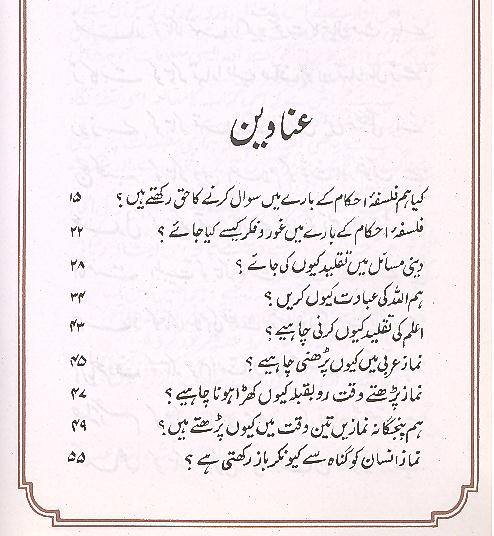 عناوین
کیا ہم فلسفۂ احکام کے بارے میں سوال کرنے کا حق رکھتے ہیں؟ ۱۵
فلسفۂ احکام کے بارے میں غور و فکر کیسے کیا جائے؟ ۲۲
دینی مسائل میں تقلید کیوں کی جائے؟ ۲۸
ہم اللہ کی عبادت کیوں کریں؟ ۳۴
اعلم کی تقلید کیوں کرنی چاہیے؟ ۴۳
نماز عربی میں کیوں پڑھنی چاہیے؟ ۴۵
نماز پڑھتے وقت رو بقبلہ کیوں کھڑا ہونا چاہیے؟ ۴۷
ہم پنجگانہ نمازیں تین وقت میں کیوں پڑھتے ہیں؟ ۴۹
نماز انسان کو گناہ سے کیونکر باز رکھتی ہے؟ ۵۵